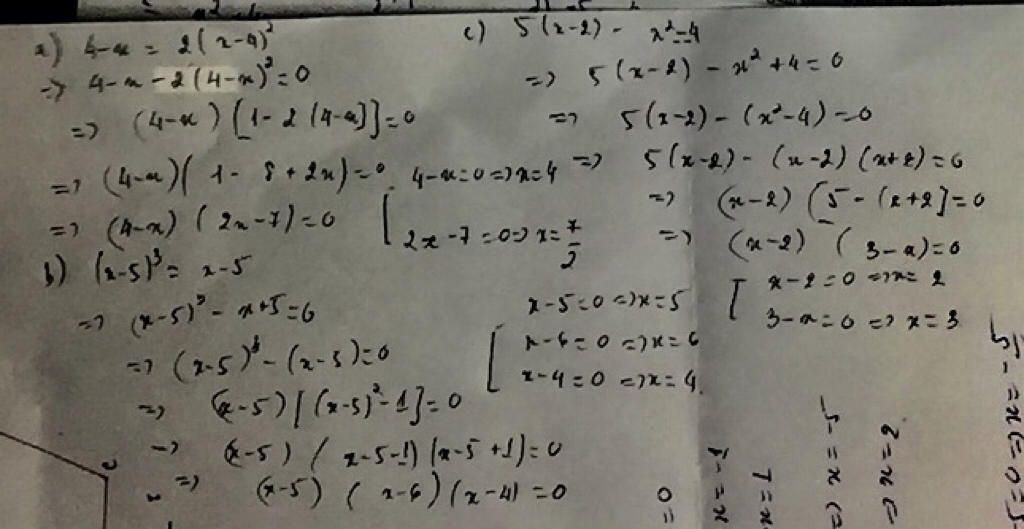 a) 4-x = 2(x-4)²
=> 4-x-2(4-x)²=0
=> (4-x) [1-2(4-x)]=0
=> (4-x)(1-8+2x)=0
=> (4-x) (2x-7)=0
4-x=0=>x=4
2x-7=0=>x=7/2
b) (x-5)³= x-5
=> (x-5)³-x+5=0
=> (x-5)³-(x-5)=0
=> (x-5)[(x-5)²-1]=0
=> (x-5) (x-5-1)(x-5+1)=0
=> (x-5) (x-6)(x-4)=0
x-5=0=>x=5
x-6=0=>x=6
x-4=0=>x=4.
c) 5(x-2) = x²-4
=> 5(x-2)-x²+4=0
=> 5(x-2)-(x²-4)=0
=> 5(x-2)-(x-2)(x+2)=0
=> (x-2) [5-(x+2]=0
=> (x-2) (3-x)=0
x-2=0=>x=2
3-x=0=>x=3
=0
x=-1
x=1
=>x=-5
=>x=2